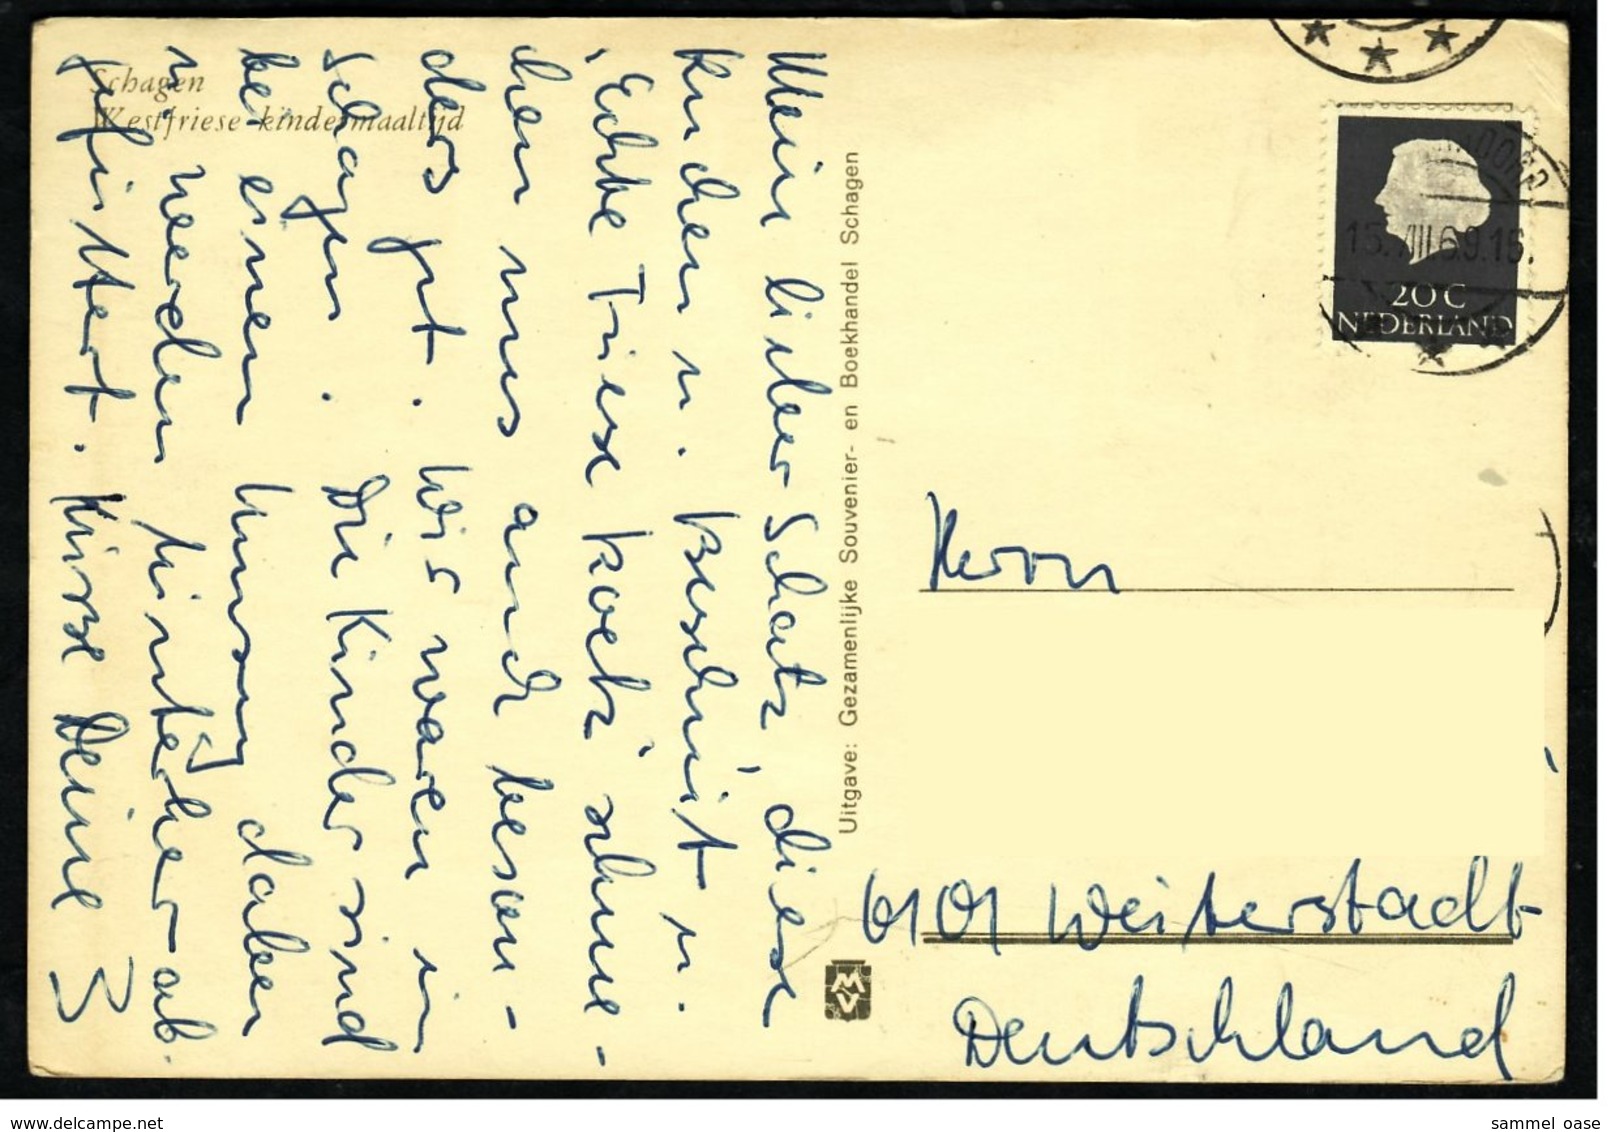 Schagen
Westfriese kindermaaltijd
Mein lieber Schatz, diese
Kuchen u. Beschuit u.
"Echte Friese koek" schme-
cken uns auch beson-
ders gut. Wir waren in
Schagen. Die Kinder sind
bei einem Umzug dabei
u. werden hinterher ab-
gefüttert. Küsse Deine
Uitgave: Gezamenlijke Souvenier- en Boekhandel Schagen
MV
15.VIII.69.15.
20 C
NEDERLAND
Herrn
6101 Weiterstadt
Deutschland
www.delcampe.net
sammel_oase